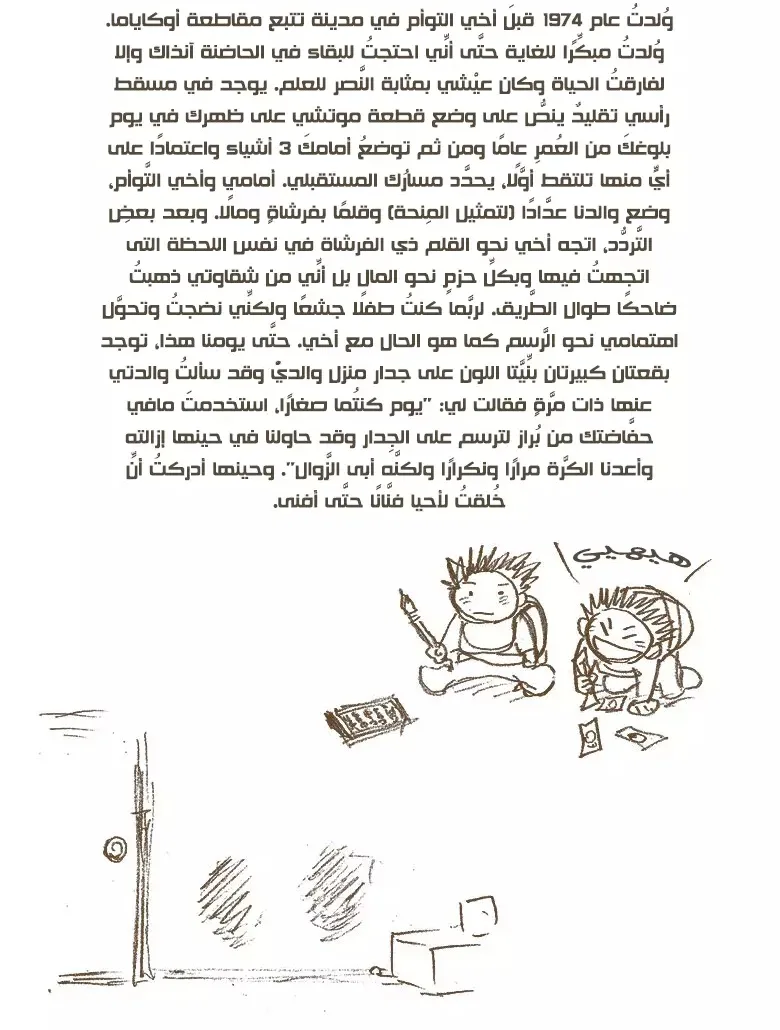 وُلدتُ عام 1974 قبلَ أخي التوأم في مدينة تتبع مقاطعة أوكاياما.
وُلدتُ مبكِّرًا للغاية حتَّى أنِّي احتجتُ للبقاء في الحاضنة آنذاك وإلا
لفارقتُ الحياة وكان عيْشي بمثابة النَّصر للعلم. يوجد في مسقط
رأسي تقليدٌ ينصُّ على وضع قطعة موتشي على ظهرك في يوم
بلوغكَ من العُمرِ عامًا ومن ثم توضعُ أمامكَ 3 أشياء واعتمادًا على
أيٍّ منها تلتقط أوَّلًا، يحدَّد مسارُك المستقبلي. أمامي وأخي التَّوأم،
وضع والدنا عدَّادًا (لتمثيل المِنحة) وقلمًا بفرشاةٍ ومالًا. وبعد بعضِ
التَّردُّد، اتجه أخي نحو القلم ذي الفرشاة في نفس اللحظة التى
اتجهتُ فيها وبكلِّ حزمٍ نحو المال بل أنِّي من شقاوتي ذهبتُ
ضاحكًا طوال الطَّريق. لربَّما كنتُ طفلًا جشعًا ولكنِّي نضجتُ وتحوَّل
اهتمامي نحو الرَّسم كما هو الحال مع أخي. حتَّى يومنا هذا، توجد
بقعتان كبيرتان بنِّيَّتا اللون على جدار منزل والديَّ وقد سألتُ والدتي
عنها ذات مرَّةٍ فقالت لي: "يوم كنتُما صغارًا، استخدمتَ مافي
حفَّاضتك من بُراز لترسم على الجِدار وقد حاولنا في حينها إزالته
وأعدنا الكرَّة مرارًا وتكرارًا ولكنَّه أبى الزَّوال". وحينها أدركتُ أنِّ
خُلقتُ لأحيا فنَّانًا حتَّى أفنى.
هيهيي